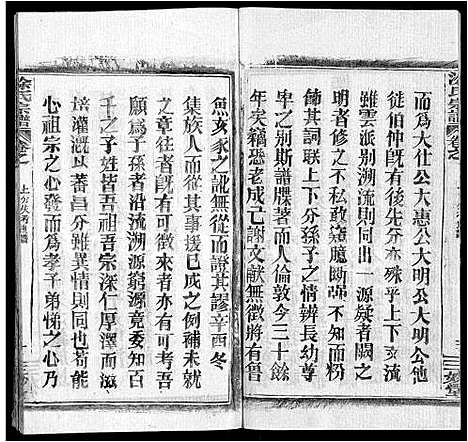 涂氏宗譜
而爲大仕公大惠公大明公大明公他
徒伯仲旣有後先分亦殊乎上下
雖雲礽別流同出一源疑者闕之
明者修之不敢私毫臆斷强不知而粉
飾其詞聯上下分孫子之情辨長幼尊
卑之别斯譜牒著而人倫敦今三十餘
年矣竊恐老成亡謝文献無徵將有魯
魚亥豕之訛無從而證其謬辛酉冬
集族人而議其事援已成之例補未就
之章往者旣有可徵來者亦有可考吾
願爲子孫者沿流溯源窮源竟委知百
千之子姓皆吾祖吾宗深仁厚澤而滋
培灌漑以基之昌分雖異情則同也若能
心祖宗之心發而爲孝子弟悌之心乃
涂氏宗譜
卷之